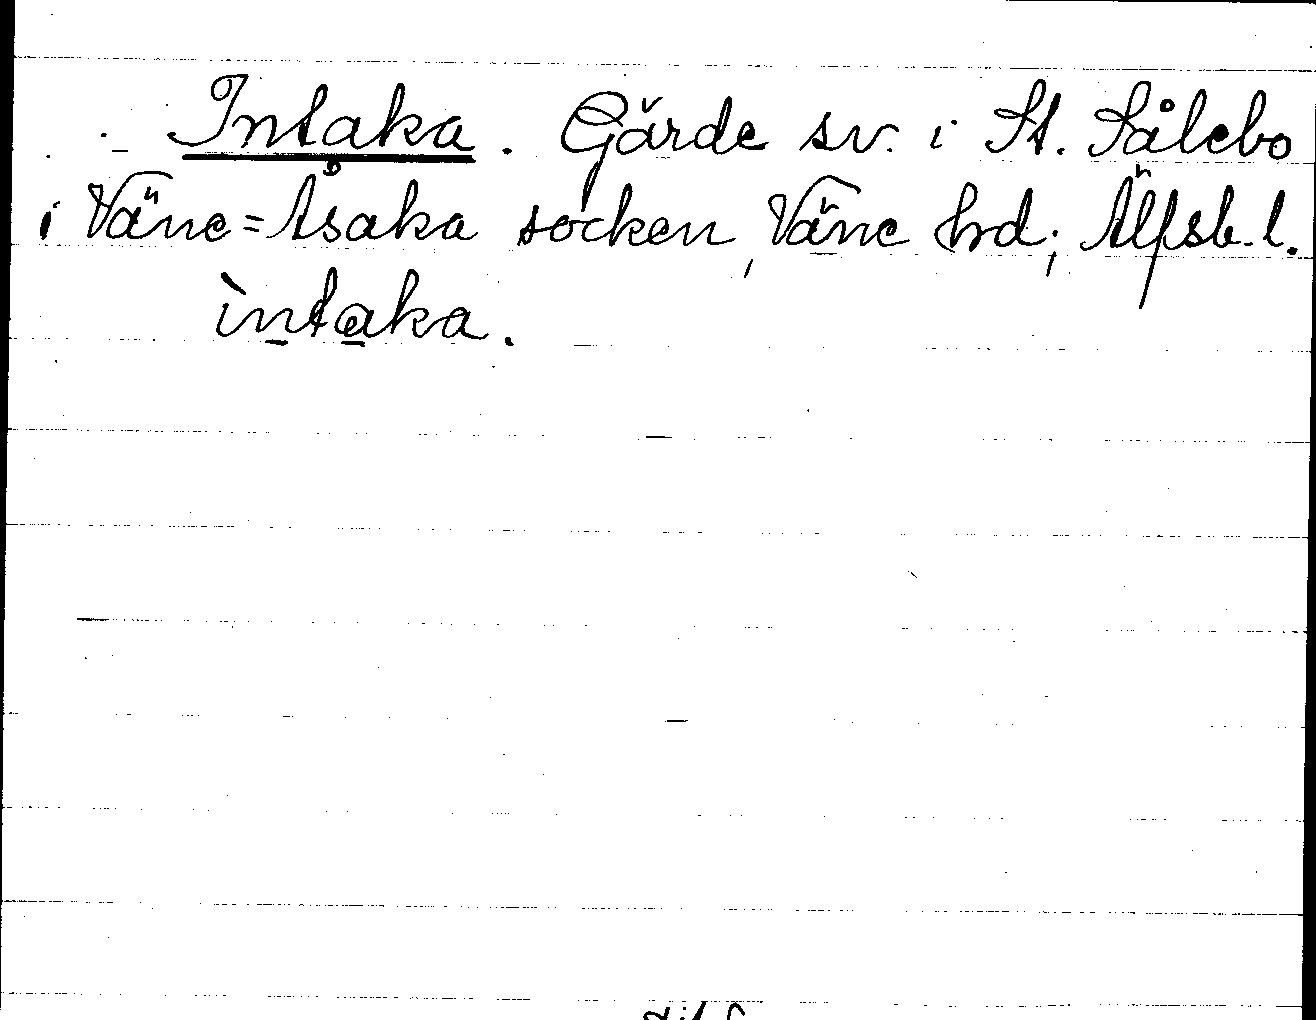 Intaka. Gärde sv. i St. Sålebo
i Väne=Åsaka socken, Väne hrd; Älfsb. l.
ìntaka.